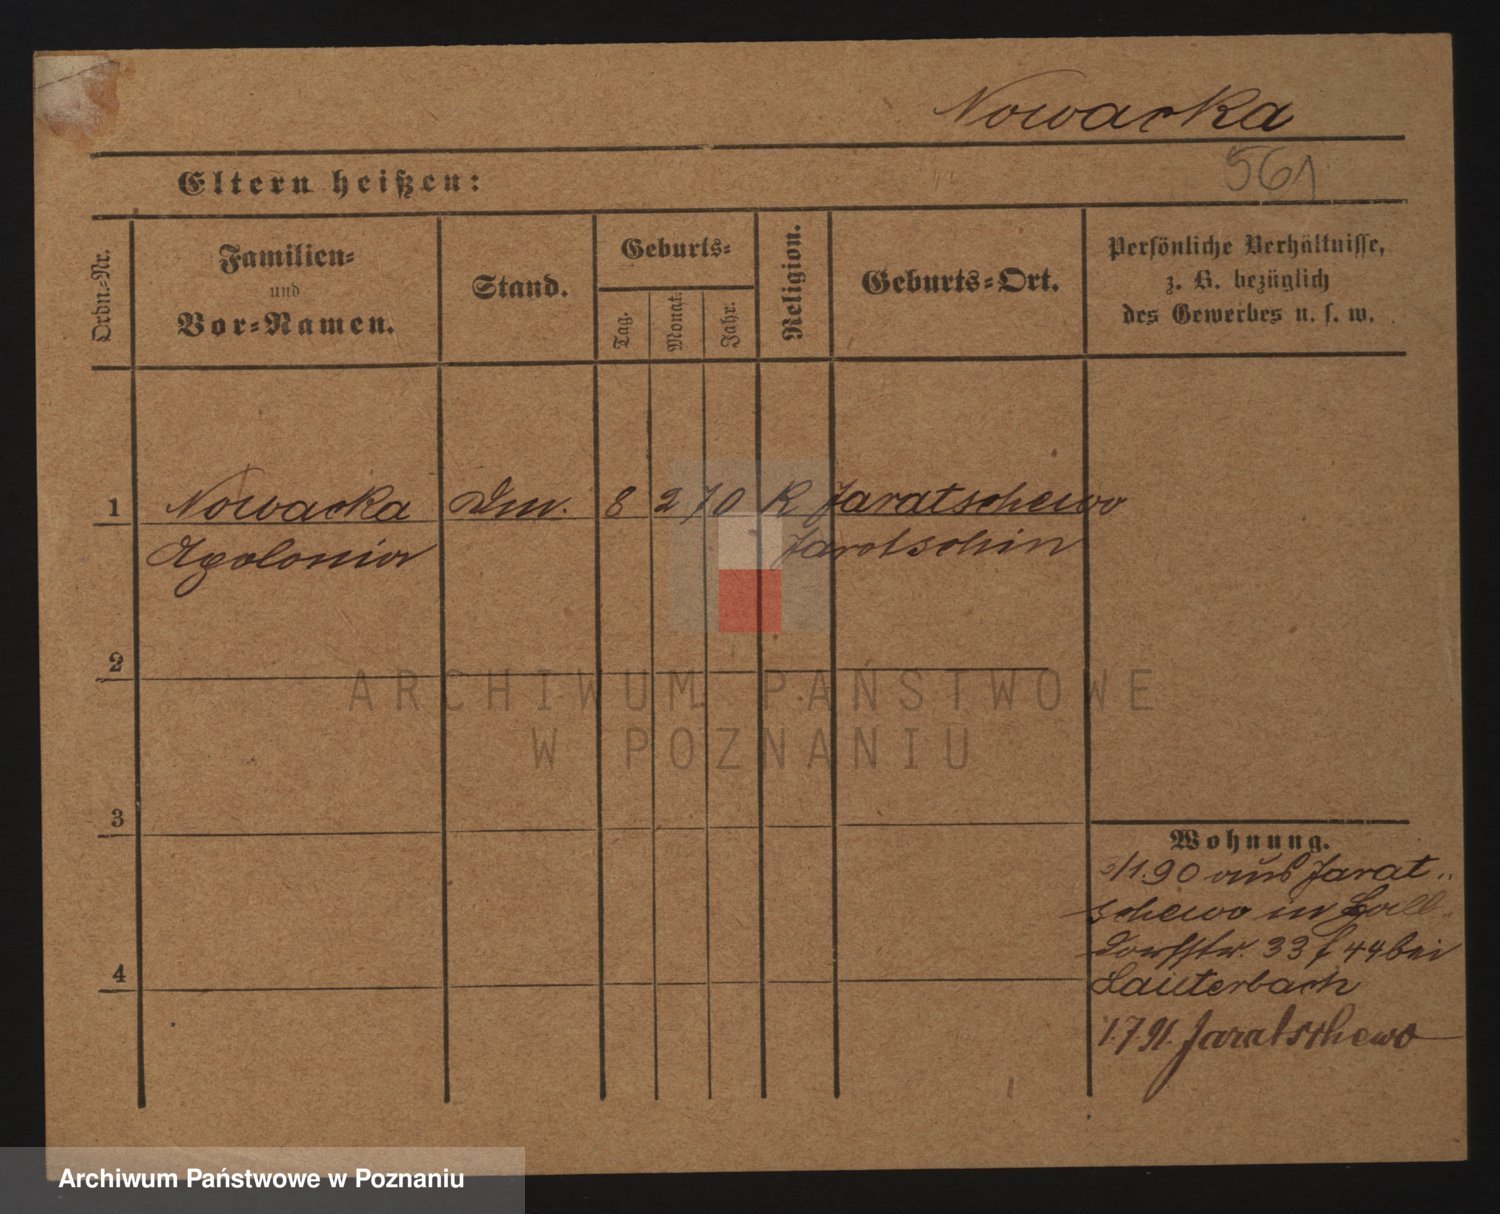 Nowacka
561
Eltern heißen:
Ordn.-Nr.
Familien-
und
Vor-Namen.
Stand.
Geburts-
Tag.
Monat.
Jahr.
Religion.
Geburts-Ort.
Persönliche Verhältnisse,
z. B. bezüglich
des Gewerbes u. s. w.
1 Nowacka 8 2 70 K Jaratschewo
Apolonia Jarotschin
2
3
4
Wohnung.
/1.90 aus Jarat
schewo in
Dorfstr. 33 44 bei
Lauterbach
1.7 91. Jaratschewo
ARCHIWUM PAŃSTWOWE
W POZNANIU
Archiwum Państwowe w Poznaniu